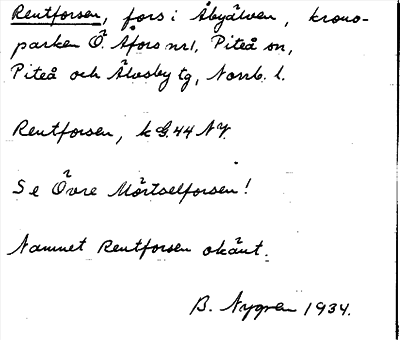 Rentforsen, fors i Åbyälven, krono-
parken Ö. Åfors nr 1, Piteå sn,
Piteå och Älvsby tg, Norrb. l.
Rentforsen, k G.44 NY.
Se Övre Mörtselforsen!
Namnet Rentforsen okänt.
B. Nygren 1934.